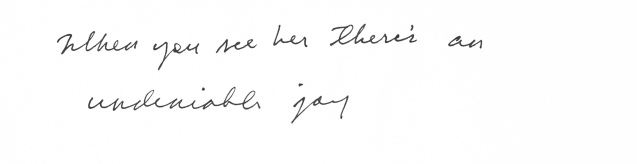 When you see her there's an
undeniable joy